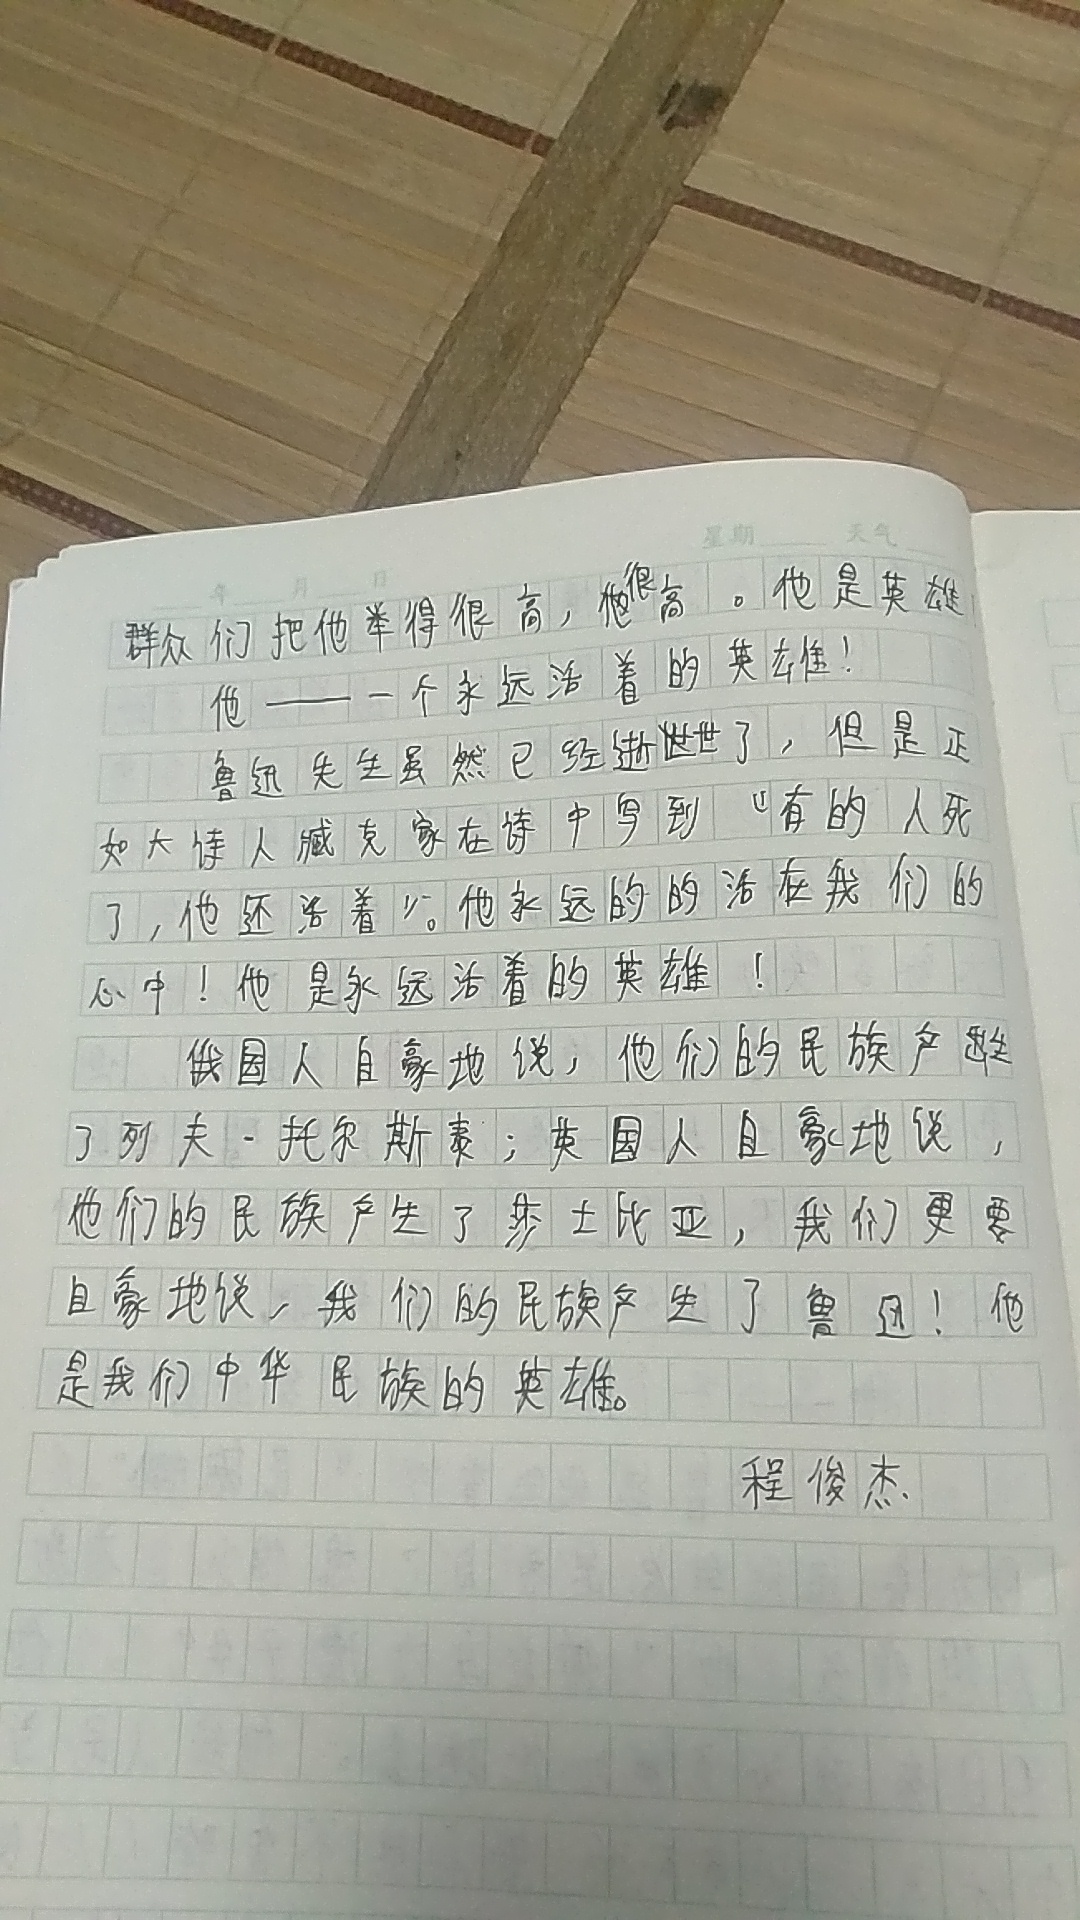 星期 天气
年 月 日
群众们把他举得很高，很高。他是英雄
他——一个永远活着的英雄！
鲁迅先生虽然已经逝世了，但是正
如大诗人臧克家在诗中写到“有的人死
了，他还活着”。他永远的的活在我们的
心中！他是永远活着的英雄！
俄国人自豪地说，他们的民族产生
了列夫-托尔斯泰；英国人自豪地说，
他们的民族产生了莎士比亚，我们更要
自豪地说，我们的民族产生了鲁迅！他
是我们中华民族的英雄。
程俊杰